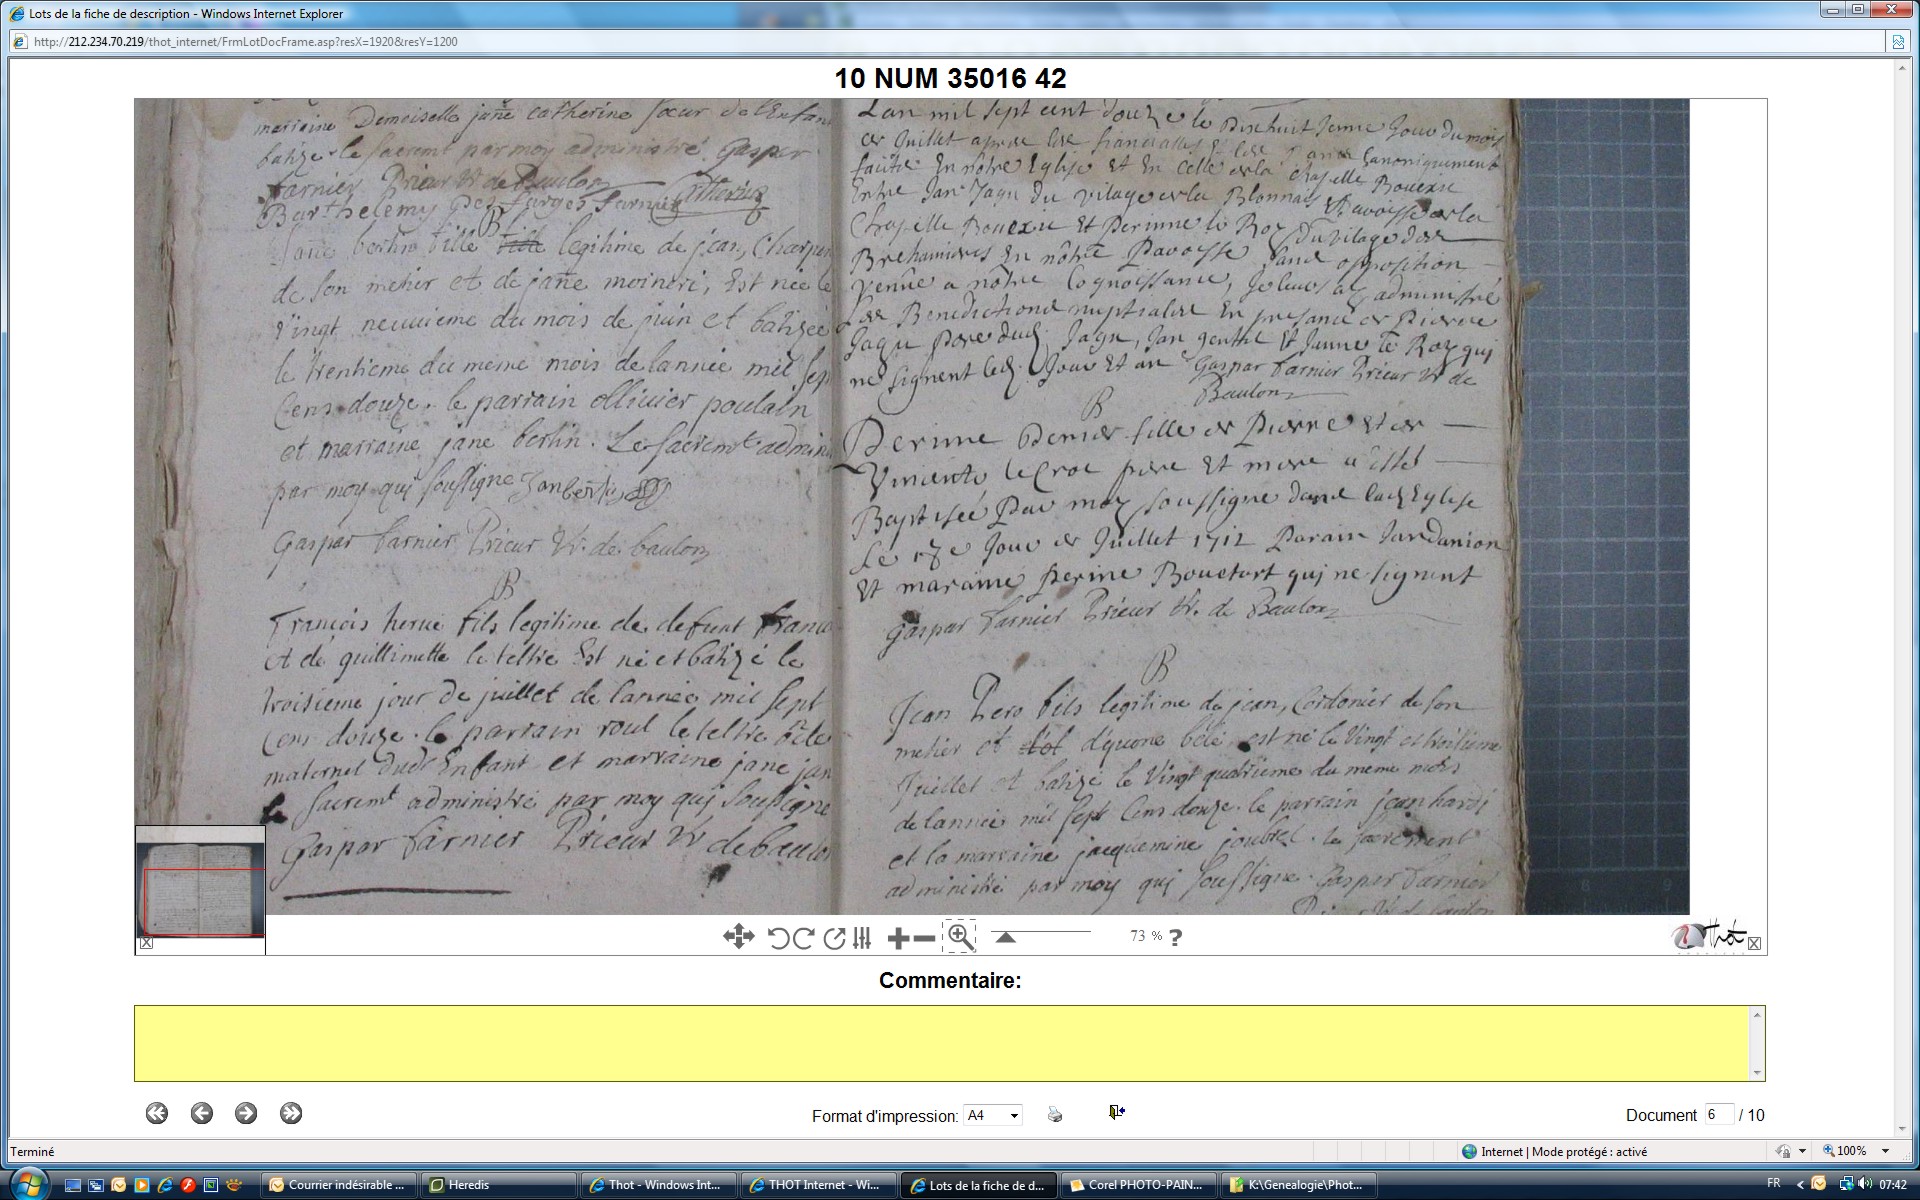 Lots de la fiche de description - Windows Internet Explorer
http://212.234.70.219/thot_internet/FrmLotDocFrame.asp?resX=1920&resY=1200
10 NUM 35016 42
marraine Demoiselle jane Catherine sœur de l'Enfan
batizé le sacremt par moy administré Gasper
farnier Prieur Vr de Baulon
Barthelemy Des farges farnier Catherine
B
Jane bertin fille legitime de jean, Charpen
de son metier et de jane moineri, Est née le
vingt neuuieme du mois de juin et batizée
le trentieme du meme mois de lannée mil sep
Cens douze. le parrain ollivier poulain
et marraine jane bertin. Le sacremt admini
par moy qui soussigne Janbertin
Gaspar farnier Prieur Vr. de baulon
B
François herue fils legitime de defunt franco
et de guillimette le teltre Est né et batizé le
troisieme jour de juillet de lannée mil sept
Cens douze. le parrain roul le teltre ocle
maternel dudt Enfant et marraine jane jan
le sacremt administré par moy qui soussigne
Gaspar farnier Prieur Vr de baulon
Lan mil sept cent douze le Dixhuit Jeme Jour du mois
de Juillet apres les fiancailles et les canoniquement
faitte En nôtre Eglise et En Celle de la chapelle Bouexic
Entre Jan Jagu du vilage de la Blonnais paroisse de la
Chapelle Bouexic Et Perinne le Roy du vilage des
Brehaimieres En nôtre Paroisse sans opposition
venüe a nôtre Cognoissance, Je leurs ay administré
Les Benedictions nuptialles En presance de Pierre
Jagu Pere dud. Jagu, Jan gentil Et Janne le Roy qui
ne signent led. Jour Et an Gaspar farnier Prieur Vr de
Baulon
B
Perinne Denis fille de Pierre Et de
Vincente le Croc pere Et mere a Esté
Baptisée Par moy soussigne dans lad. Eglise
Le 17e Jour de Juillet 1712 Parain Jan danion
Et maraine Perine Bouetart qui ne signent
Gaspar farnier Prieur Vr. de Baulon
B
Jean Pero fils legitime de jean, Cordonier de son
metier et d'yuone belé est né le Vingt et troisieme
Juillet et batizé le Vingt quatrieme du meme mois
de lannée mil sept Cens douze. le parrain jean hardi
et la marraine jacquemine joubrel. le sacrement
administré par moy qui soussigne. Gaspar farnier
Prieur Vr de baulon
73 % ?
Thot
Commentaire:
Format d'impression: A4
Document 6 / 10
Terminé
Internet | Mode protégé : activé
100%
Courrier indésirable ...
Heredis
Thot - Windows Int...
THOT Internet - Wi...
Lots de la fiche de d...
Corel PHOTO-PAIN...
K:\Genealogie\Phot...
FR
07:42